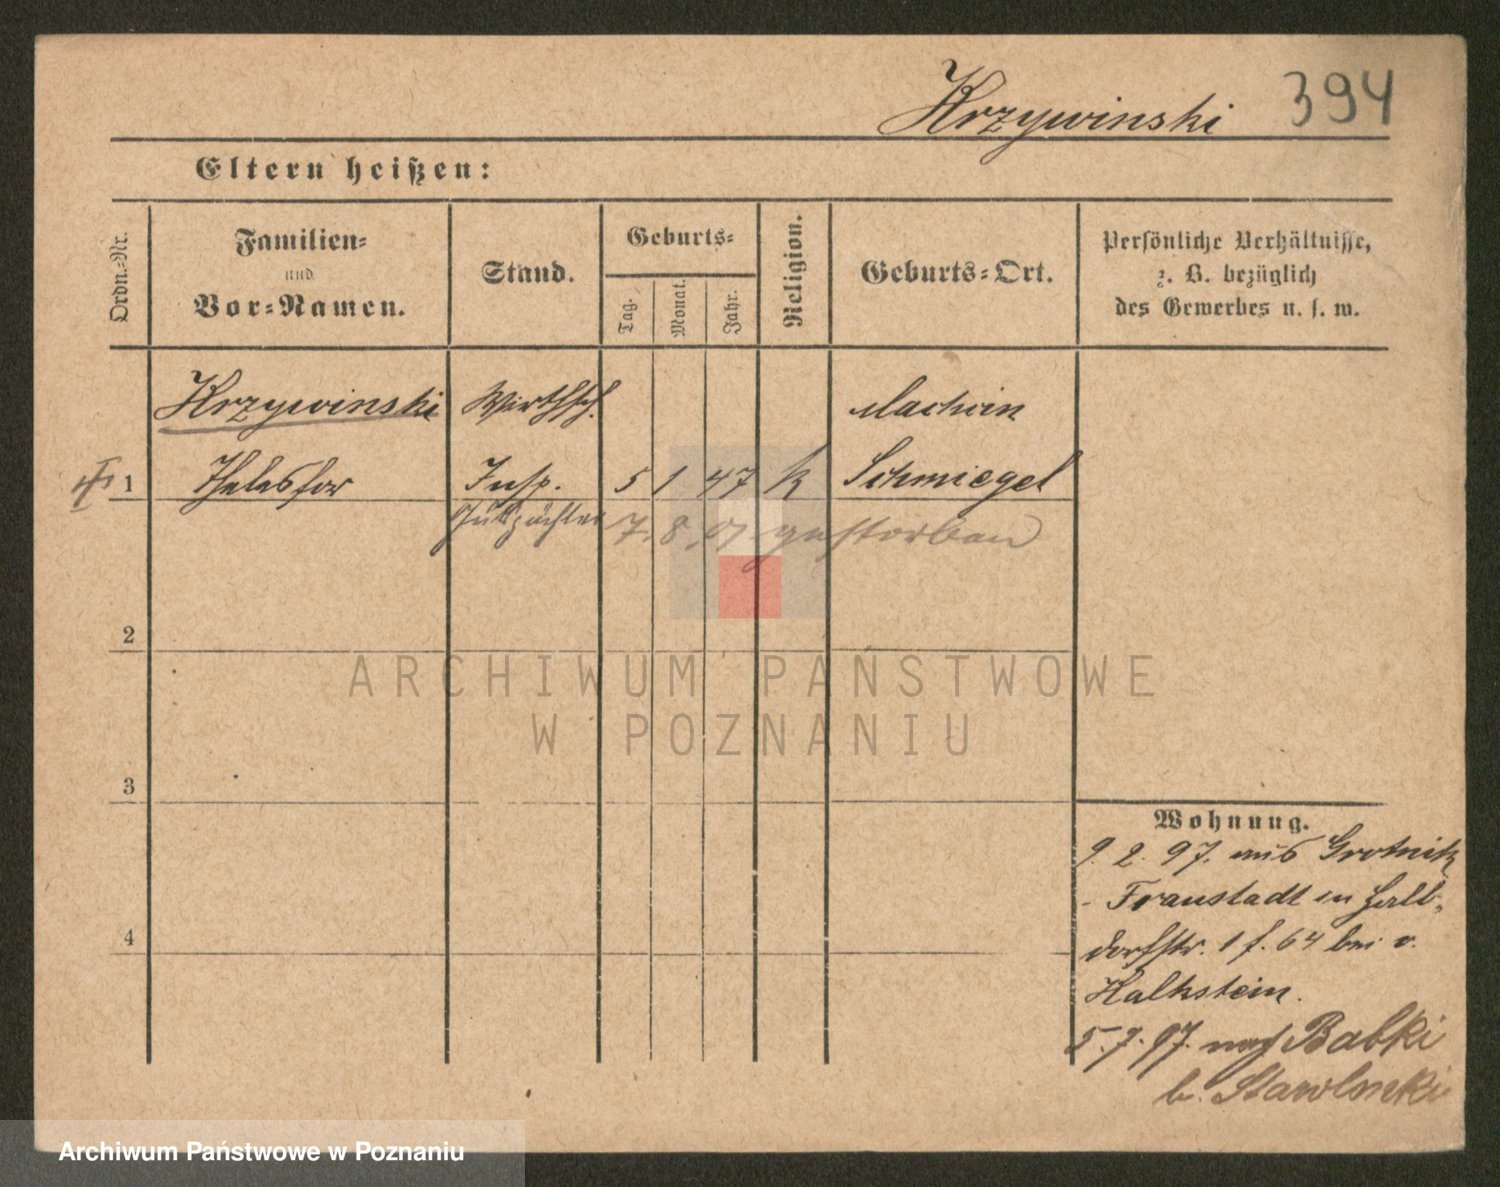 Krzywinski 394
Eltern heißen:
Ordn.-Nr.
Familien-
und
Vor-Namen.
Stand.
Geburts-
Tag.
Monat.
Jahr.
Religion.
Geburts-Ort.
Persönliche Verhältnisse,
z. B. bezüglich
des Gewerbes u. s. w.
Krzywinski Wirthsch.
1 Thelesfor Insp. 5 1 47 k Schmiegel
Gutspächter 7. 8. gestorben
2
3
4
ARCHIWUM PAŃSTWOWE
W POZNANIU
Wohnung.
9. 2. 97. aus Grotnitz
- Fraustadt in Halb-
dorfstr. 1 f. 64 bei v.
Kalkstein.
5. 7. 97. nach Babki
b.
Archiwum Państwowe w Poznaniu